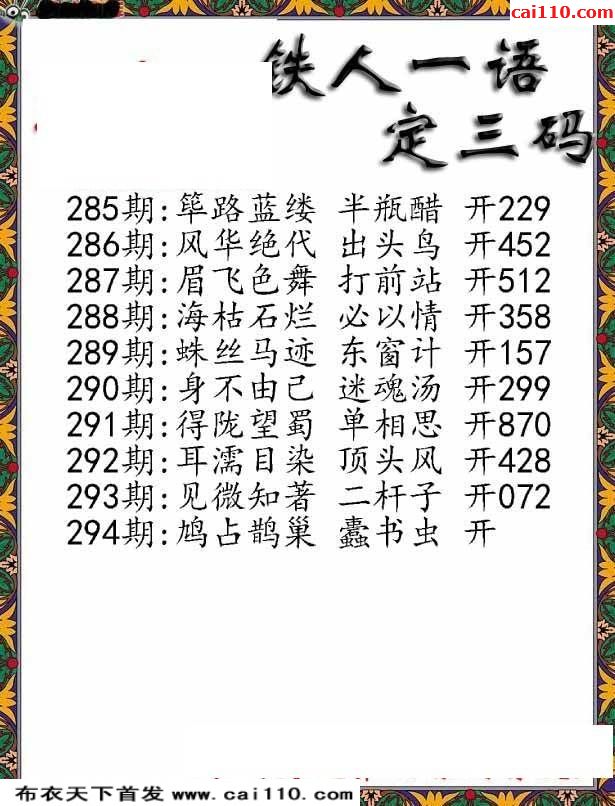 cai110.com
铁人一语
定三码
285期:筚路蓝缕 半瓶醋 开229
286期:风华绝代 出头鸟 开452
287期:眉飞色舞 打前站 开512
288期:海枯石烂 必以情 开358
289期:蛛丝马迹 东窗计 开157
290期:身不由己 迷魂汤 开299
291期:得陇望蜀 单相思 开870
292期:耳濡目染 顶头风 开428
293期:见微知著 二杆子 开072
294期:鸠占鹊巢 蠹书虫 开
布衣天下首发 www.cai110.com